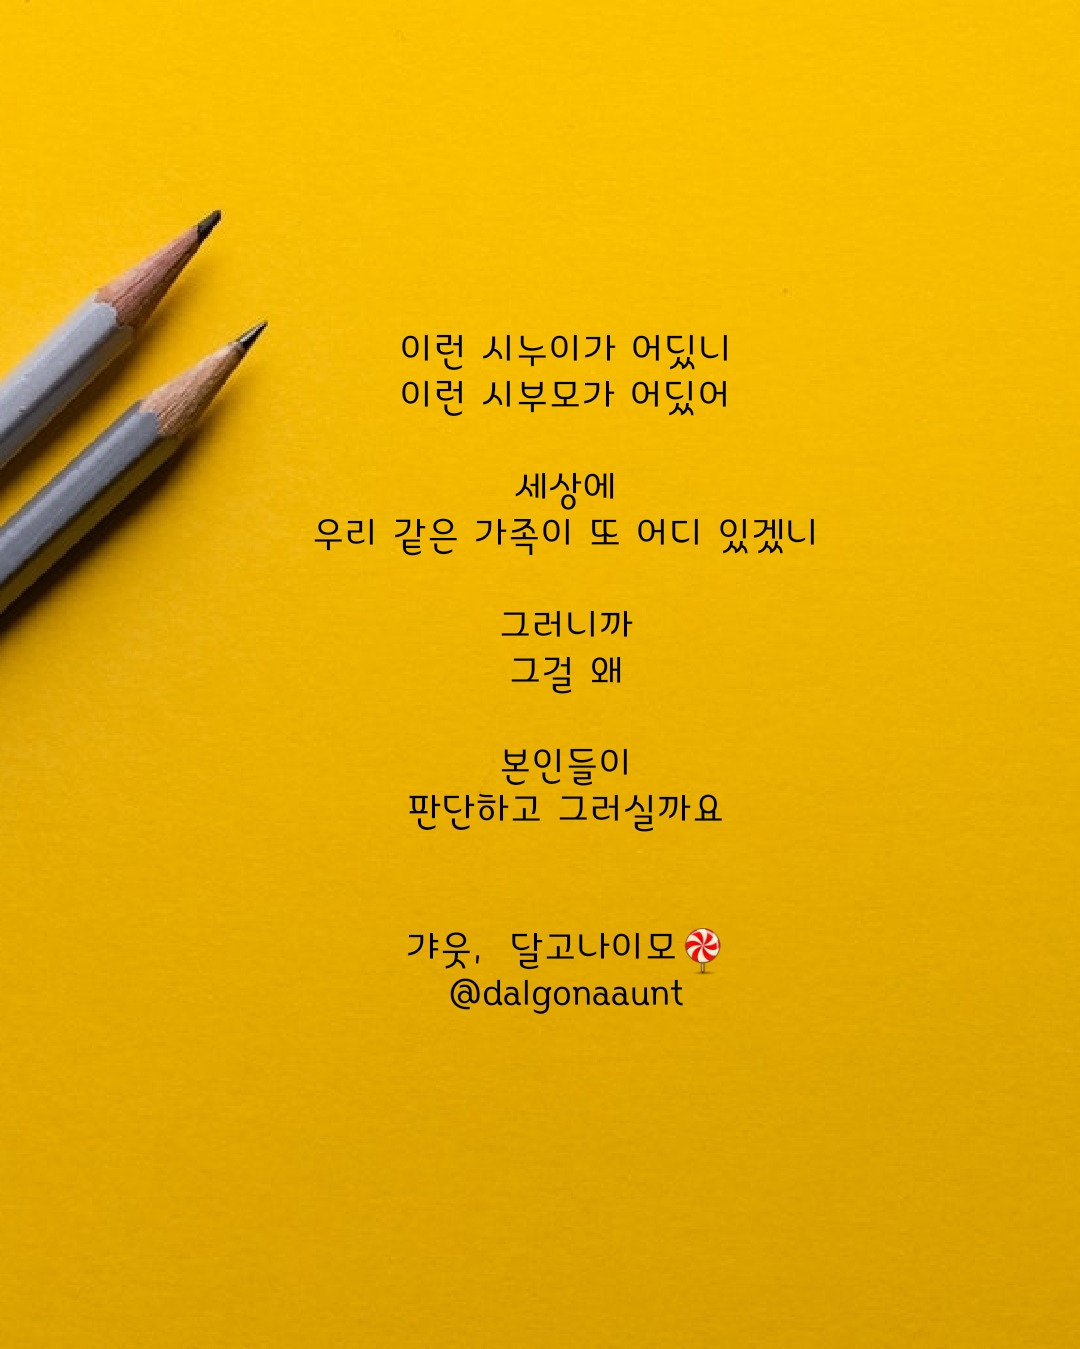 이런 시누이가 어딨니
이런 시부모가 어딨어
세상에
우리 같은 가족이 또 어디 있겠니
그러니까
그걸 왜
본인들이
판단하고 그러실까요
갸웃, 달고나이모🍭
@dalgonaaunt